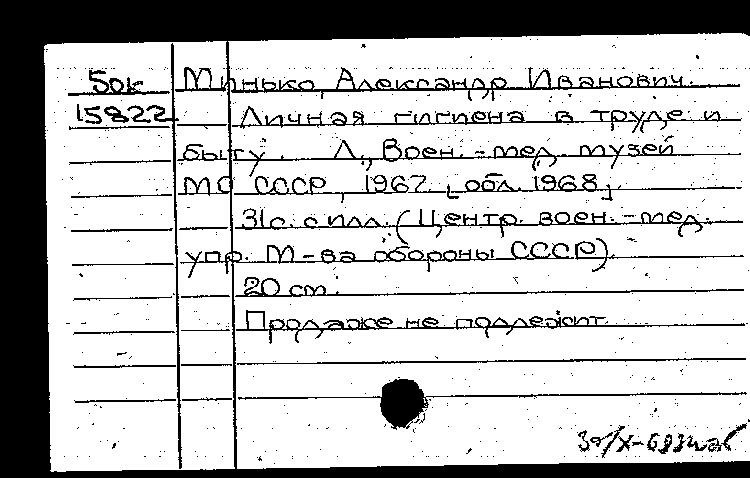 Бок Минько, Александр Иванович.
15822 Личная гигиена в труде и
быту. Л., Воен.-мед. музей
МО СССР, 1967 [обл. 1968].
31с. с илл. (Центр. воен.-мед.
упр. М-ва обороны СССР).
20 см.
Продаже не подлежит.